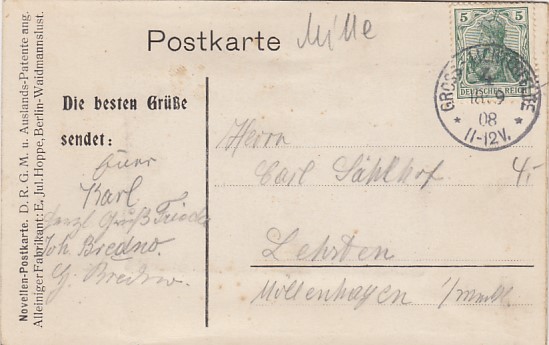 Postkarte
Mille
5 5
DEUTSCHES REICH
GROSS-LICHTERFELDE
4
18. 9
08
* *
11-12V.
Novellen-Postkarte. D. R. G. M. u. Auslands-Patente ang.
Alleiniger Fabrikant: E. Jul. Hoppe, Berlin-Waidmannslust.
Die besten Grüße
sendet:
Euer
Karl
Herzl Gruß Frieda
Joh Bredno.
G. Bredno.
Herrn
Carl Sählhof
Lehsten
Möllenhagen i/meckl.